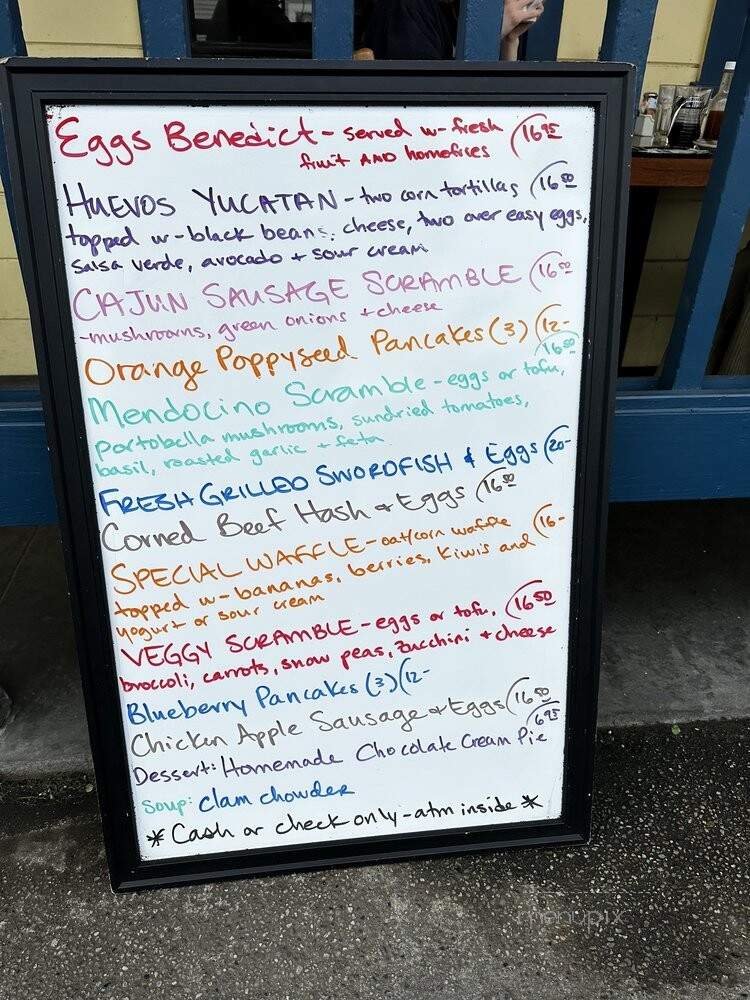 Eggs Benedict - served w- fresh (16⁹⁵
fruit AND homefries
HUEVOS YUCATAN - two corn tortillas (16⁵⁰
topped w- black beans, cheese, two over easy eggs,
salsa verde, avocado + sour cream
CAJUN SAUSAGE SCRAMBLE (16⁵⁰
-mushrooms, green onions + cheese
Orange Poppyseed Pancakes (3) (12-
Mendocino Scramble - eggs or tofu, (16⁵⁰
portobella mushrooms, sundried tomatoes,
basil, roasted garlic + feta
FRESH GRILLED SWORDFISH & Eggs (20-
Corned Beef Hash & Eggs (16⁵⁰
SPECIAL WAFFLE - oat/corn waffle (16-
topped w- bananas, berries, kiwis and
yogurt or sour cream
VEGGY SCRAMBLE - eggs or tofu, (16⁵⁰
broccoli, carrots, snow peas, zucchini + cheese
Blueberry Pancakes (3) (12-
Chicken Apple Sausage & Eggs (16⁵⁰
Dessert: Homemade Chocolate Cream Pie (6⁹⁵
Soup: clam chowder
* Cash or check only - atm inside *
menupix